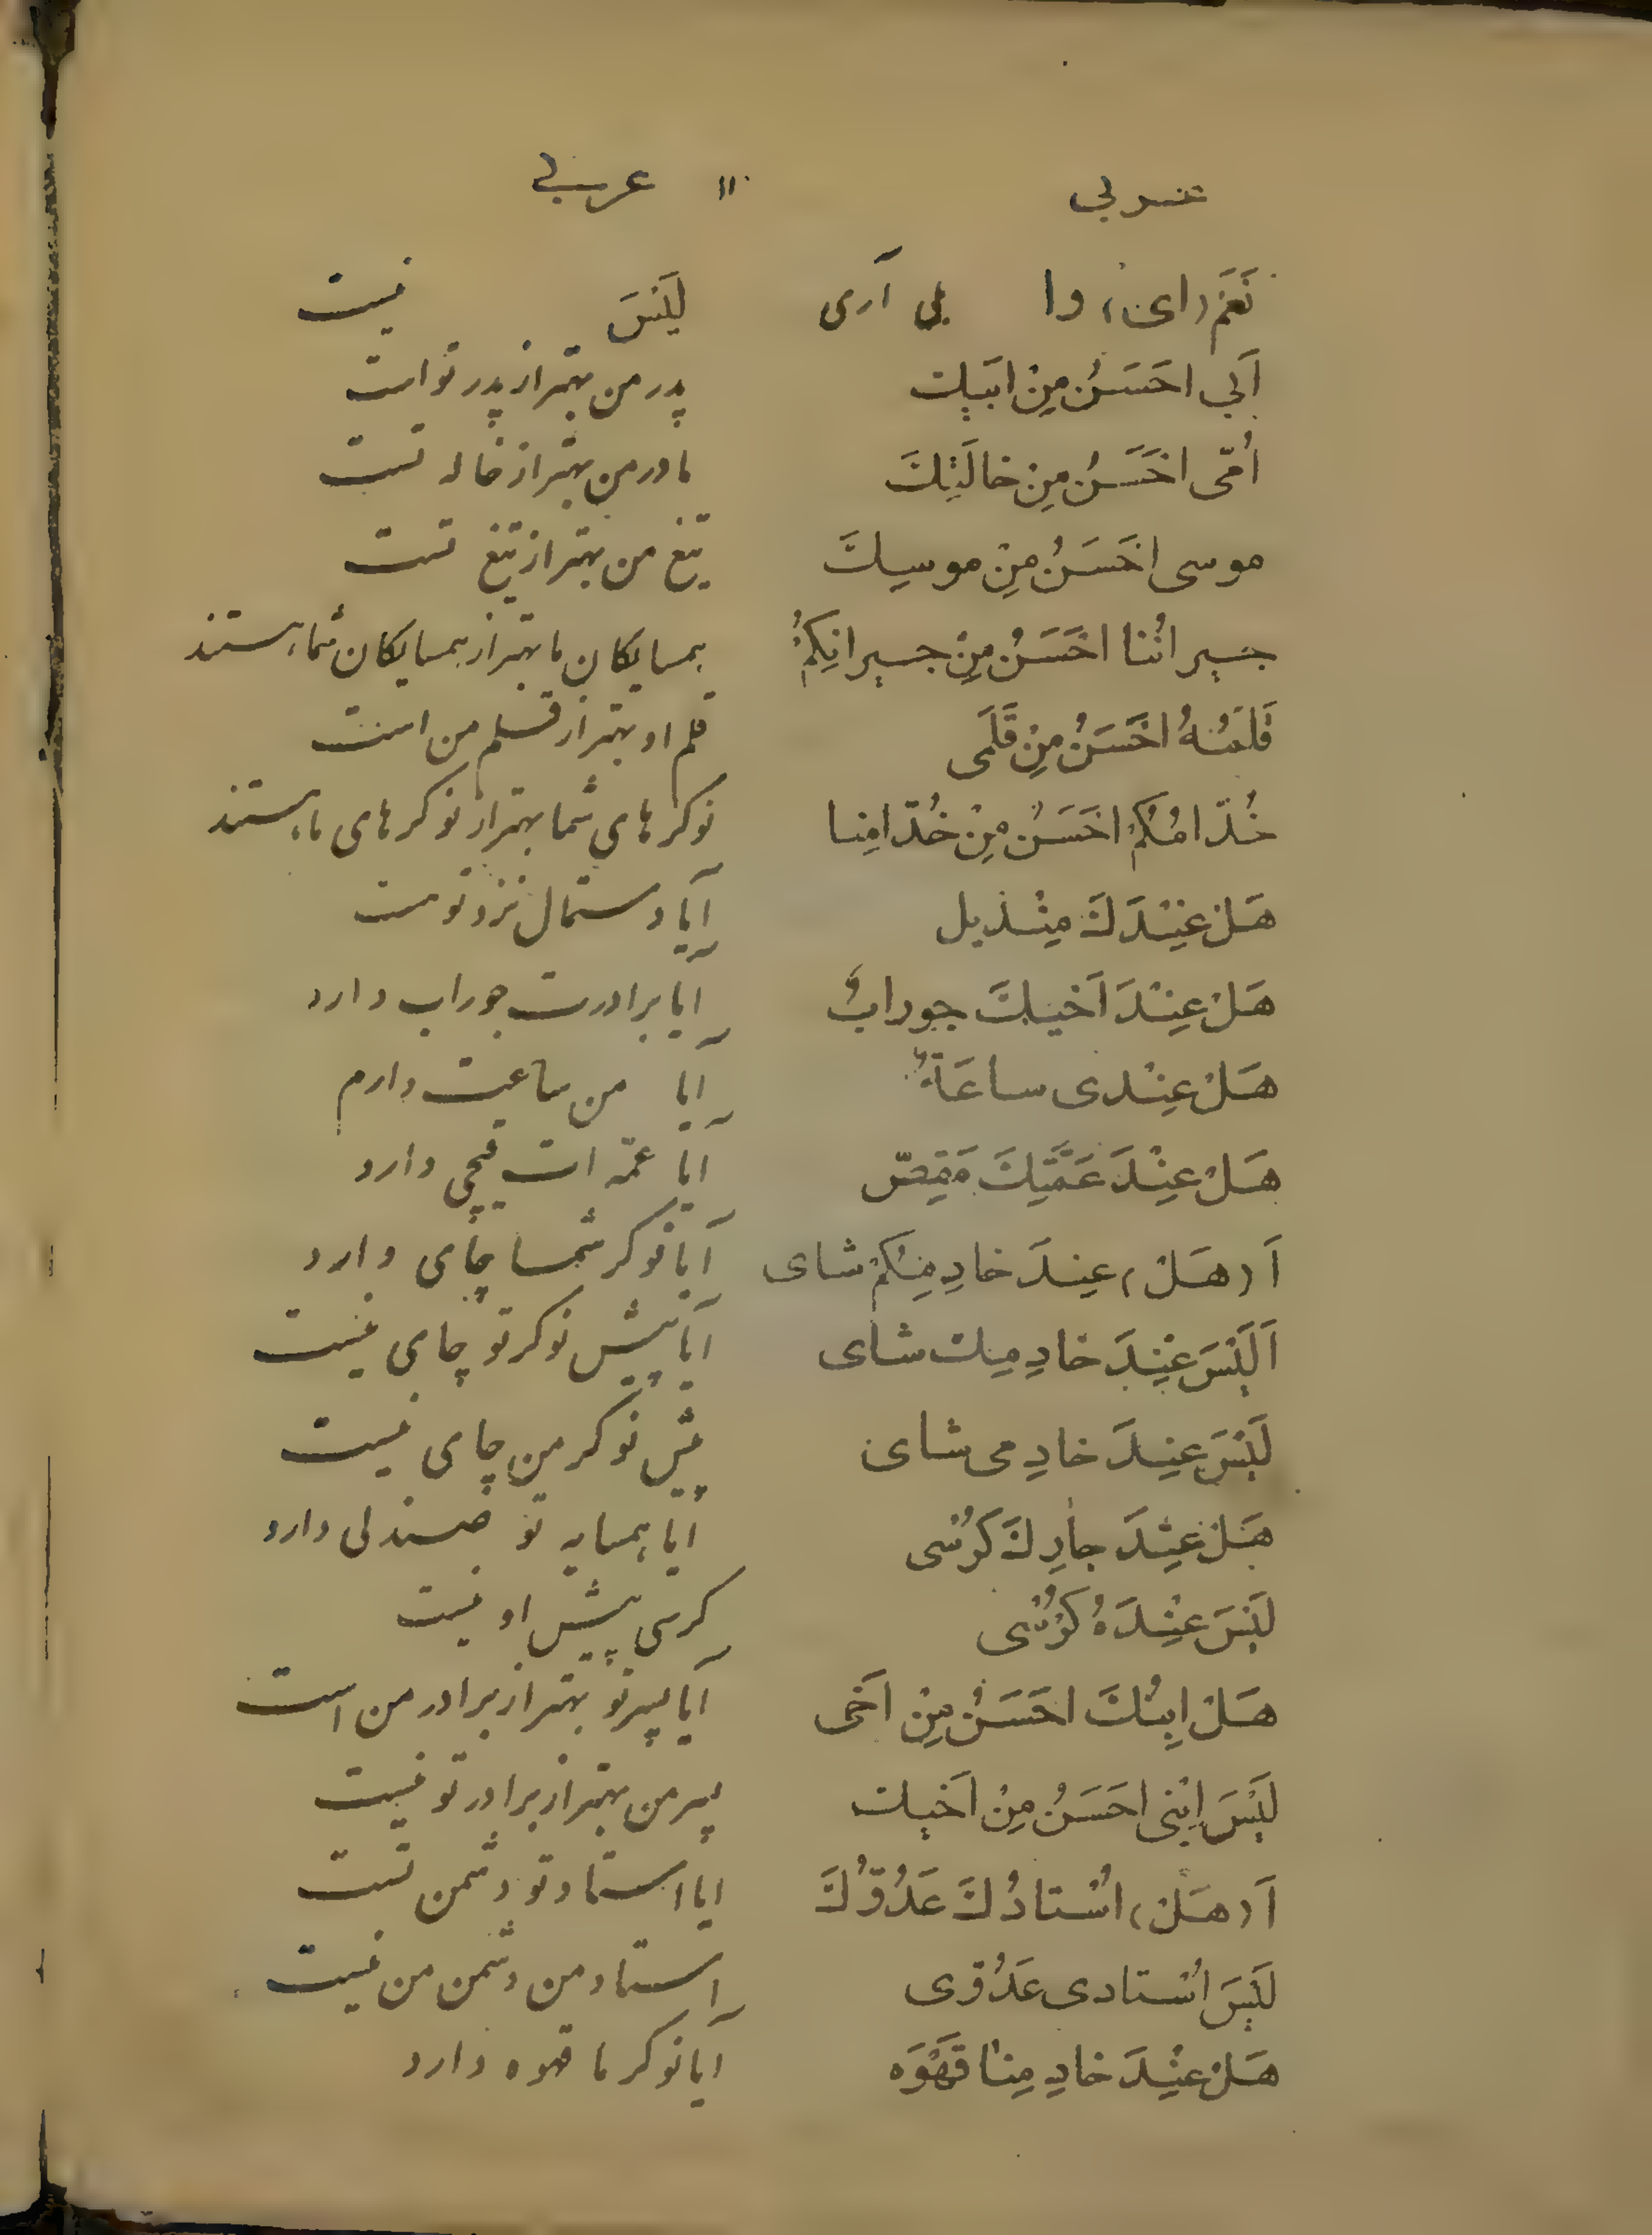 عربی ۱۱ عربی
نَعَمْ (ای) وا بلی آری لَیْسَ نیست
اَبی احَسَنُ مِنْ ابَیِكَ پدر من بهتر از پدر تو است
اُمّی احَسَنُ مِنْ خالَتِكَ مادر من بهتر از خاله تست
موسی احَسَنُ مِنْ موسِیكَ تیغ من بهتر از تیغ تست
جیرانُنا احَسَنُ مِنْ جیرانِكُمْ همسایکان ما بهتر از همسایکان شما هستند
قَلَمُهُ احَسَنُ مِنْ قَلَمی قلم او بهتر از قلم من است
خُدّامُكُمْ احَسَنُ مِنْ خُدّامِنا نوکرهای شما بهتر از نوکرهای ما هستند
هَلْ عِنْدَكَ مِنْدیل آیا دستمال نزد توست
هَلْ عِنْدَ اَخیكَ جورابٌ آیا برادرت جوراب دارد
هَلْ عِنْدی ساعَةٌ آیا من ساعت دارم
هَلْ عِنْدَ عَمَّتِكَ مَقِصّ آیا عمّه ات قیچی دارد
اَ (هَلْ) عِندَ خادِمِكُمْ شای آیا نوکر شما چای دارد
اَلَیْسَ عِنْدَ خادِمِكَ شای آیا پیش نوکر تو چای نیست
لَیْسَ عِنِدَ خادِمی شای پیش نوکر من چای نیست
هَلْ عِنْدَ جارِكَ كُرْسی آیا همسایه تو صندلی دارد
لَیْسَ عِنْدَهُ كُرْسی کرسی پیش او نیست
هَلْ اِبْنُكَ احَسَنُ مِنْ اَخی آیا پسر تو بهتر از برادر من است
لَیْسَ اِبْنی احَسَنُ مِنْ اَخیك پسر من بهتر از برادر تو نیست
اَ (هَلْ) اُسْتادُكَ عَدُوُّكَ ایا استاد تو دشمن تست
لَیْسَ اُسْتادی عَدُوّی استاد من دشمن من نیست
هَلْ عِنْدَ خادِمِنا قَهْوَه آیا نوکر ما قهوه دارد